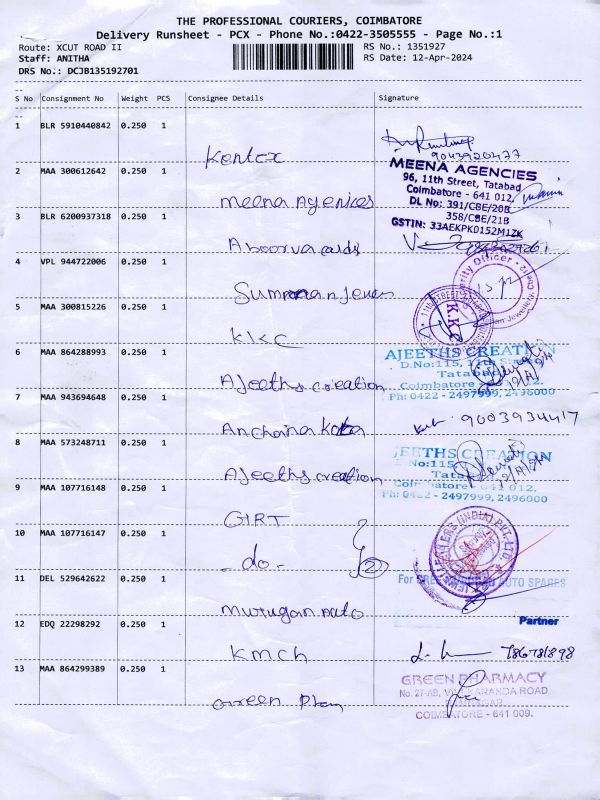 THE PROFESSIONAL COURIERS, COIMBATORE
Delivery Runsheet - PCX - Phone No.:0422-3505555 - Page No.:1
Route: XCUT ROAD II
RS No.: 1351927
Staff: ANITHA
RS Date: 12-Apr-2024
DRS No.: DCJB135192701
S No Consignment No Weight PCS Consignee Details Signature
1 BLR 5910440842 0.250 1
Kentex
9043920437
2 MAA 300612642 0.250 1
Meena Agenices
MEENA AGENCIES
96, 11th Street, Tatabad
Coimbatore - 641 012.
DL No: 391/CBE/20B
358/CBE/21B
GSTIN: 33AEKPK0152M1ZK
3 BLR 6200937318 0.250 1
Aboorva cards
4 VPL 944722006 0.250 1
5 MAA 300815226 0.250 1
KKC
K.K.C
6 MAA 864288993 0.250 1
Ajeeths creation
AJEETHS CREATION
D.No:115, 11th Street
Tatabad
Coimbatore - 641 012.
Ph: 0422 - 2497999, 2496000
7 MAA 943694648 0.250 1
Anchana
9003934417
8 MAA 573248711 0.250 1
Ajeeths creation
JEETHS CREATION
No:115
Coimbatore - 641 012.
Ph: 0422 - 2497999, 2496000
9 MAA 107716148 0.250 1
GIRT
10 MAA 107716147 0.250 1
- do -
2
JEWELLERS (INDIA) PVT. LTD.
11 DEL 529642622 0.250 1
Murugan Auto
For AUTO SPARES
Partner
12 EDQ 22298292 0.250 1
KMCH
13 MAA 864299389 0.250 1
Green
GREEN PHARMACY
No. 27-AB, VIVEKANANDA ROAD
COIMBATORE - 641 009.